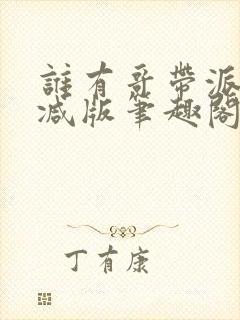 誰有哥帶派
减版筆趣閣
丁有康